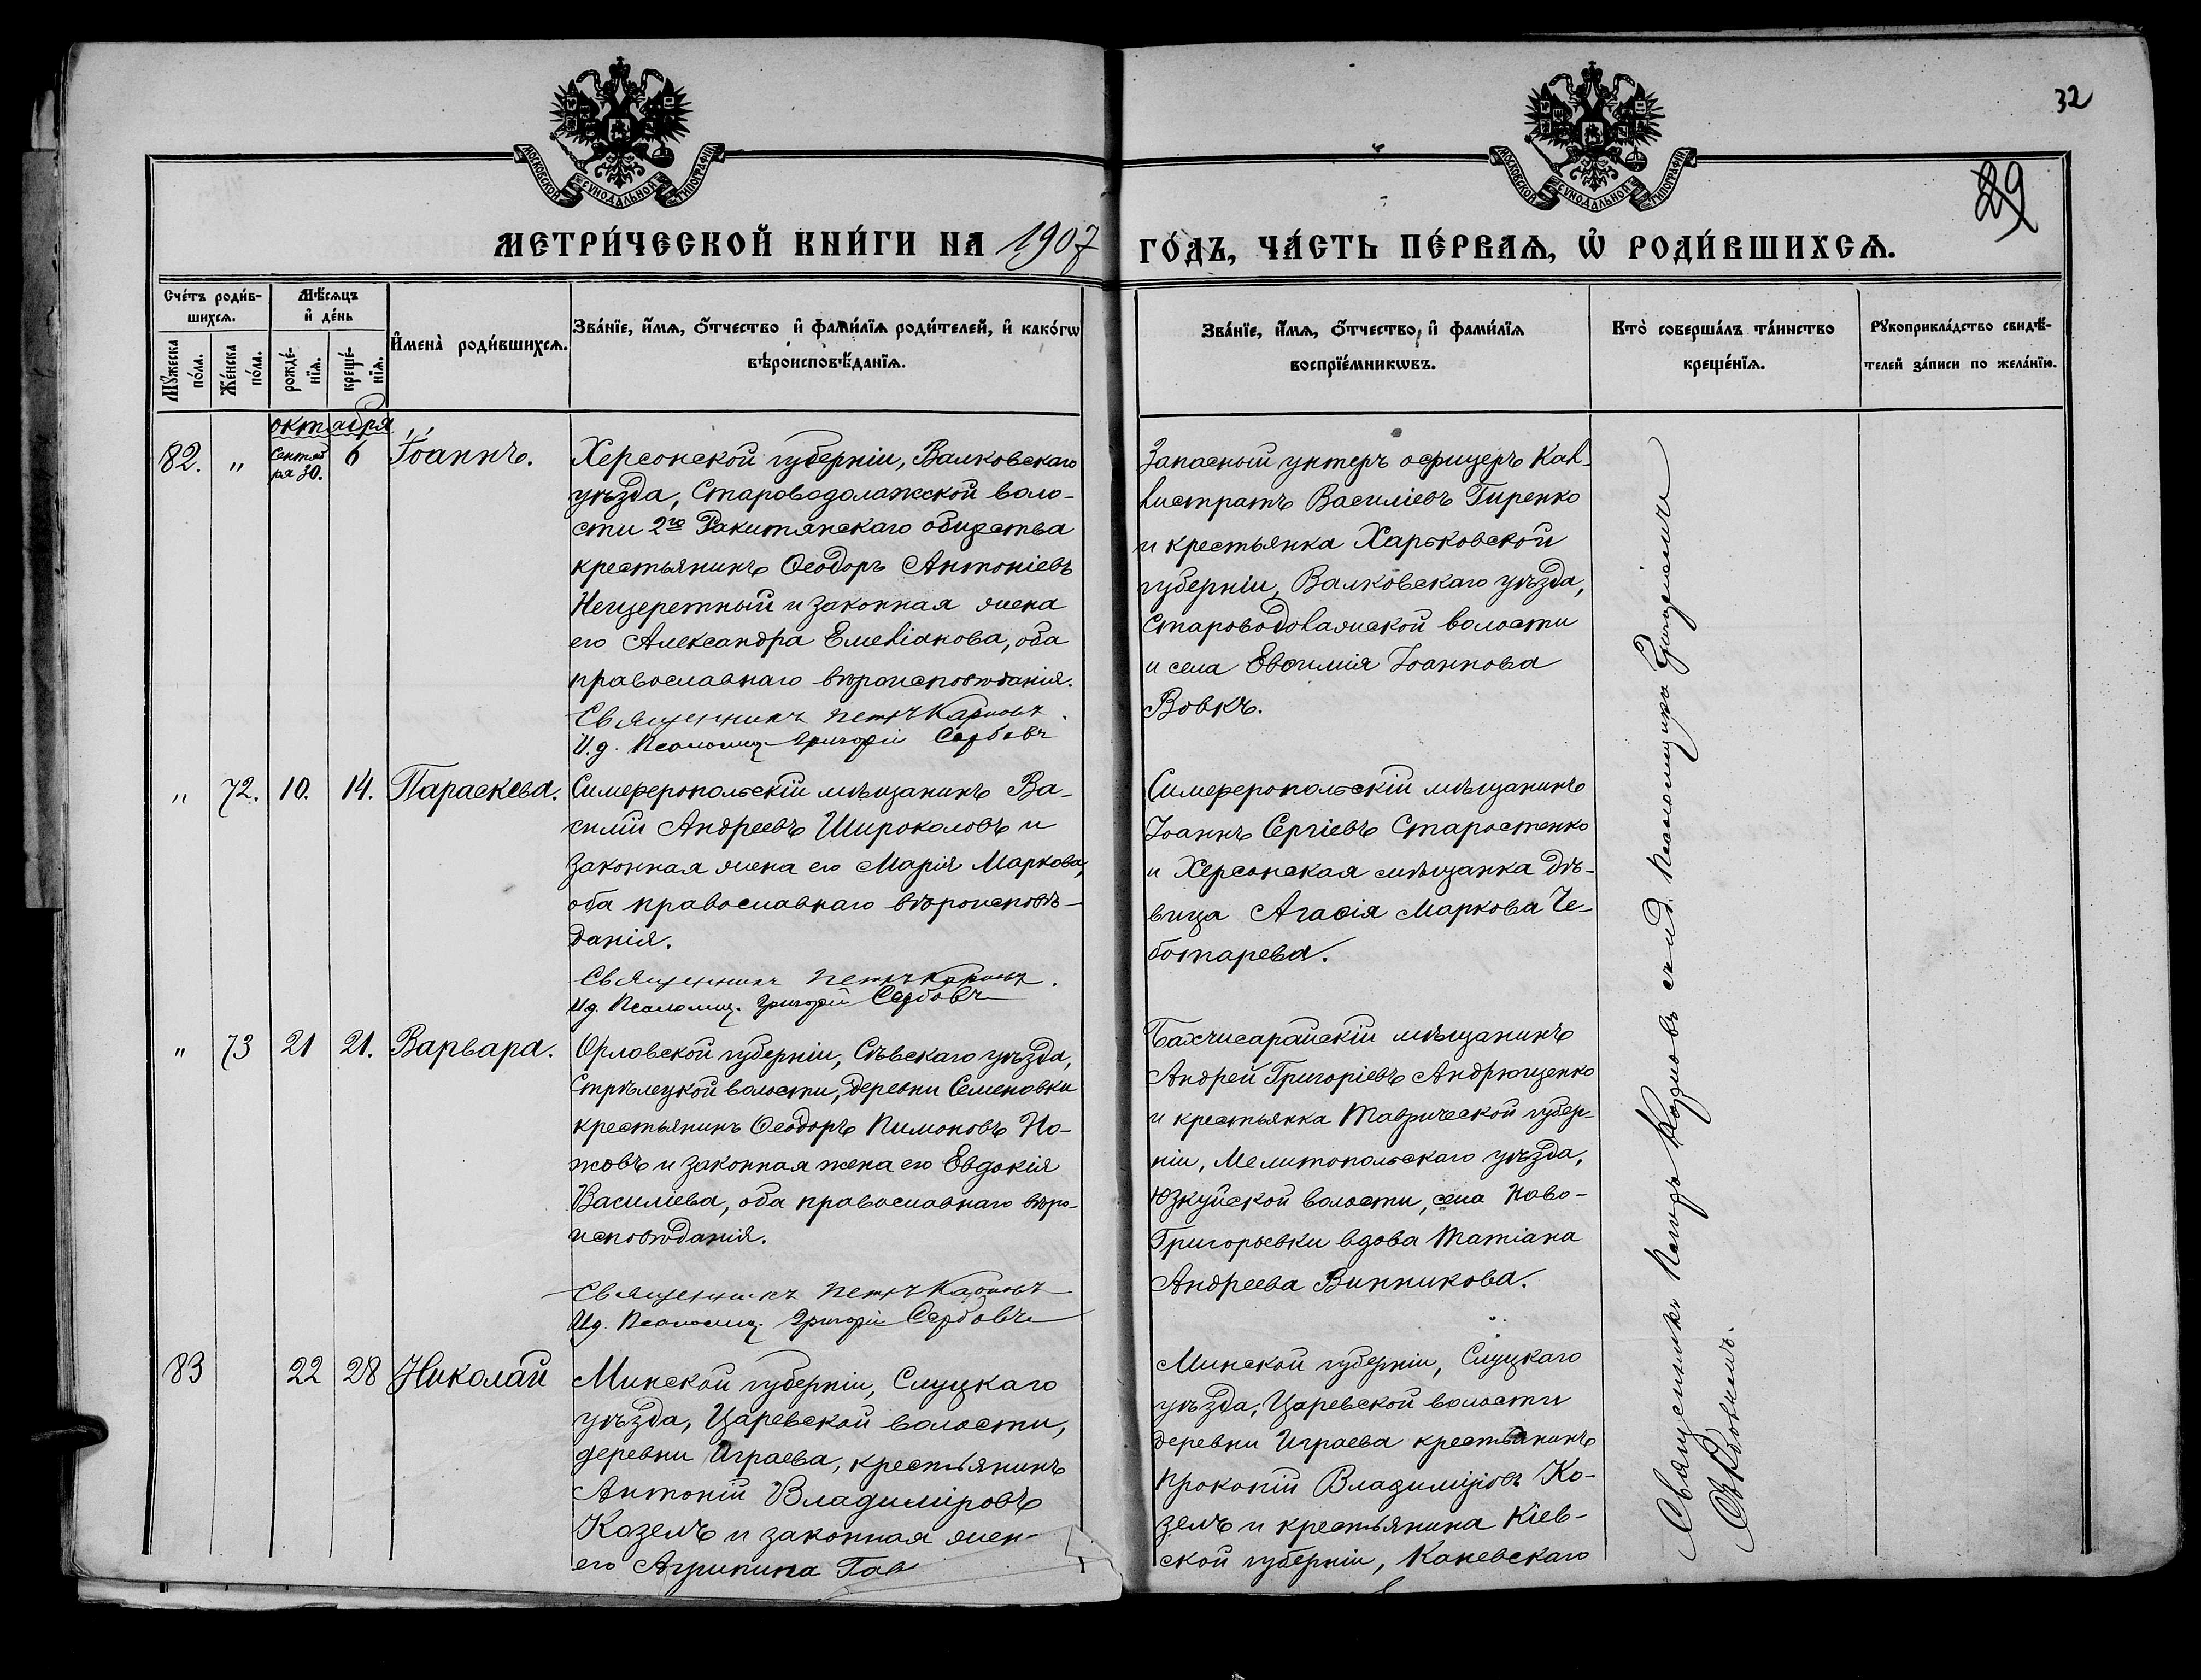 32
29
МОСКОВСКОЙ СѴНОДАЛЬНОЙ ТИПОГРАФІИ
МОСКОВСКОЙ СѴНОДАЛЬНОЙ ТИПОГРАФІИ
МЕТРИ́ЧЕСКОЙ КНИ́ГИ НА 1907 ГО́ДЪ, ЧА́СТЬ ПЕ́РВАѦ, Ѡ҆ РОДИ́ВШИХСѦ.
Сче́тъ роди́в-
шихсѧ.
Мꙋ́жеска по́ла.
Же́нска по́ла.
Мѣ́сѧцъ
и҆ де́нь
рожде́-
нїѧ.
креще́-
нїѧ.
И҆мена̀ роди́вшихсѧ.
Зва́нїе, и҆́мѧ, ѻ҆́тчество и҆ фами́лїѧ роди́телей, и҆ како́гѡ
вѣроисповѣ́данїѧ.
Зва́нїе, и҆́мѧ, ѻ҆́тчество, и҆ фами́лїѧ
воспрїе́мникѡвъ.
Кто̀ соверша́лъ та́инство
креще́нїѧ.
Рꙋкоприкла́дство свидѣ́-
телей за́писи по жела́нїю.
октября
82. „ Сентяб
ря 30. 6 Іоаннъ.
Херсонской губерніи, Валковскаго
уѣзда, Староводолажской воло-
сти 2го Ракитянскаго общества
крестьянинъ Ѳеодоръ Антоніевъ
Нещеретный и законная жена
его Александра Емеліанова, оба
православнаго вѣроисповѣданія.
Священникъ Петръ Карповъ.
И.д. Псаломщ. Григорій Сербовъ
Запасный унтеръ офицеръ Кал-
листратъ Василіевъ Гиренко
и крестьянка Харьковской
губерніи, Валковскаго уѣзда,
Староводолажской волости
и села Евѳимія Іоаннова
Вовкъ.
„ 72. 10. 14. Параскева.
Симферопольскій мѣщанинъ Ва-
силій Андреевъ Широколовъ и
законная жена его Марія Маркова,
оба православнаго вѣроисповѣ-
данія.
Священникъ Петръ Карповъ.
И.д. Псаломщ. Григорій Сербовъ
Симферопольскій мѣщанинъ
Іоаннъ Сергіевъ Старостенко
и Херсонская мѣщанка дѣ-
вица Агаѳія Маркова Че-
ботарева.
„ 73 21 21. Варвара.
Орловской губерніи, Сѣвскаго уѣзда,
Стрѣлецкой волости, деревни Семеновки
крестьянинъ Ѳеодоръ Пимоновъ Но-
жовъ и законная жена его Евдокія
Василіева, оба православнаго вѣро-
исповѣданія.
Священникъ Петръ Карповъ
И.д. Псаломщ. Григорій Сербовъ
Бахчисарайскій мѣщанинъ
Андрей Григоріевъ Андрющенко
и крестьянка Таврической губер-
ніи, Мелитопольскаго уѣзда,
Юзкуйской волости, села Ново-
Григорьевки вдова Татіана
Андреева Винникова.
83 22 28 Николай
Минской губерніи, Слуцкаго
уѣзда, Царевской волости,
деревни Играева, крестьянинъ
Антоній Владиміровъ
Козелъ и законная жен-
его Агрипина Гав
Минской губерніи, Слуцкаго
уѣзда, Царевской волости
деревни Играева крестьянинъ
Прокопій Владиміровъ Ко-
зелъ и крестьянина Кіев-
ской губерніи, Каневскаго
Священникъ Петръ Карповъ съ и.д. Псаломщика Григоріемъ
Сербовымъ.